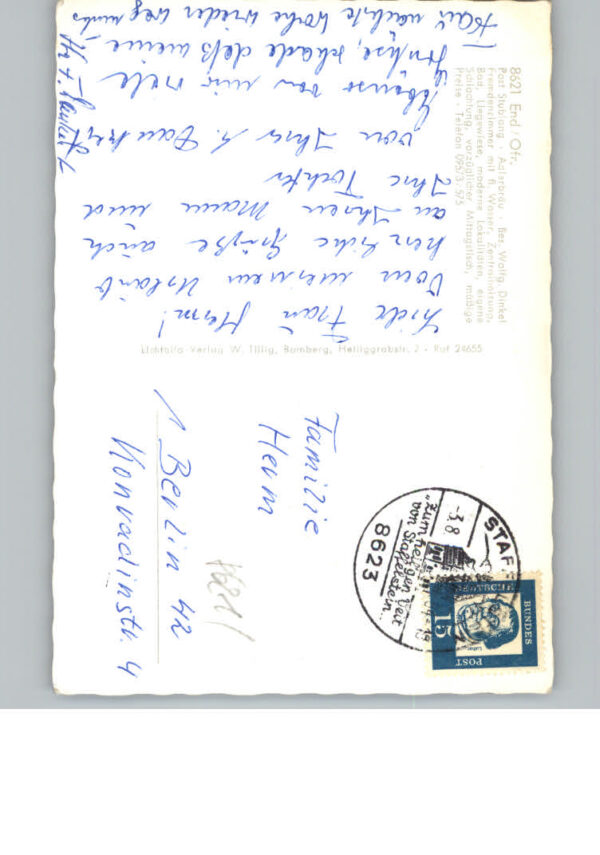 8621 End / Ofr.
Post Stublang - Adlerbräu - Bes. Wolfg. Dinkel
Fremdenzimmer mit fl. Wasser, Zentralheizung,
Bad, Liegewiese, moderne Lokalitäten, eigene
Schlachtung, vorzüglicher Mittagstisch, mäßige
Preise - Telefon 09573/375
Liebe Frau Herm!
Vom meinem Urlaub
herzliche Grüße auch
an Ihren Mann und
Ihre Tochter
von Ihrer
Ebenso von mir viele
Grüße, schade daß meine
Frau nächste Woche wieder weg muß
Lichtbild-Verlag W. Tillig, Bamberg, Heiliggrabstr. 2 - Ruf 24655
Familie
Herm
1 Berlin 42
Konradinstr. 4
STAFF
8623
-3.8
"Zum heiligen Veit
von Staffelstein...
DEUTSCHE
BUNDES
POST
15
Luther